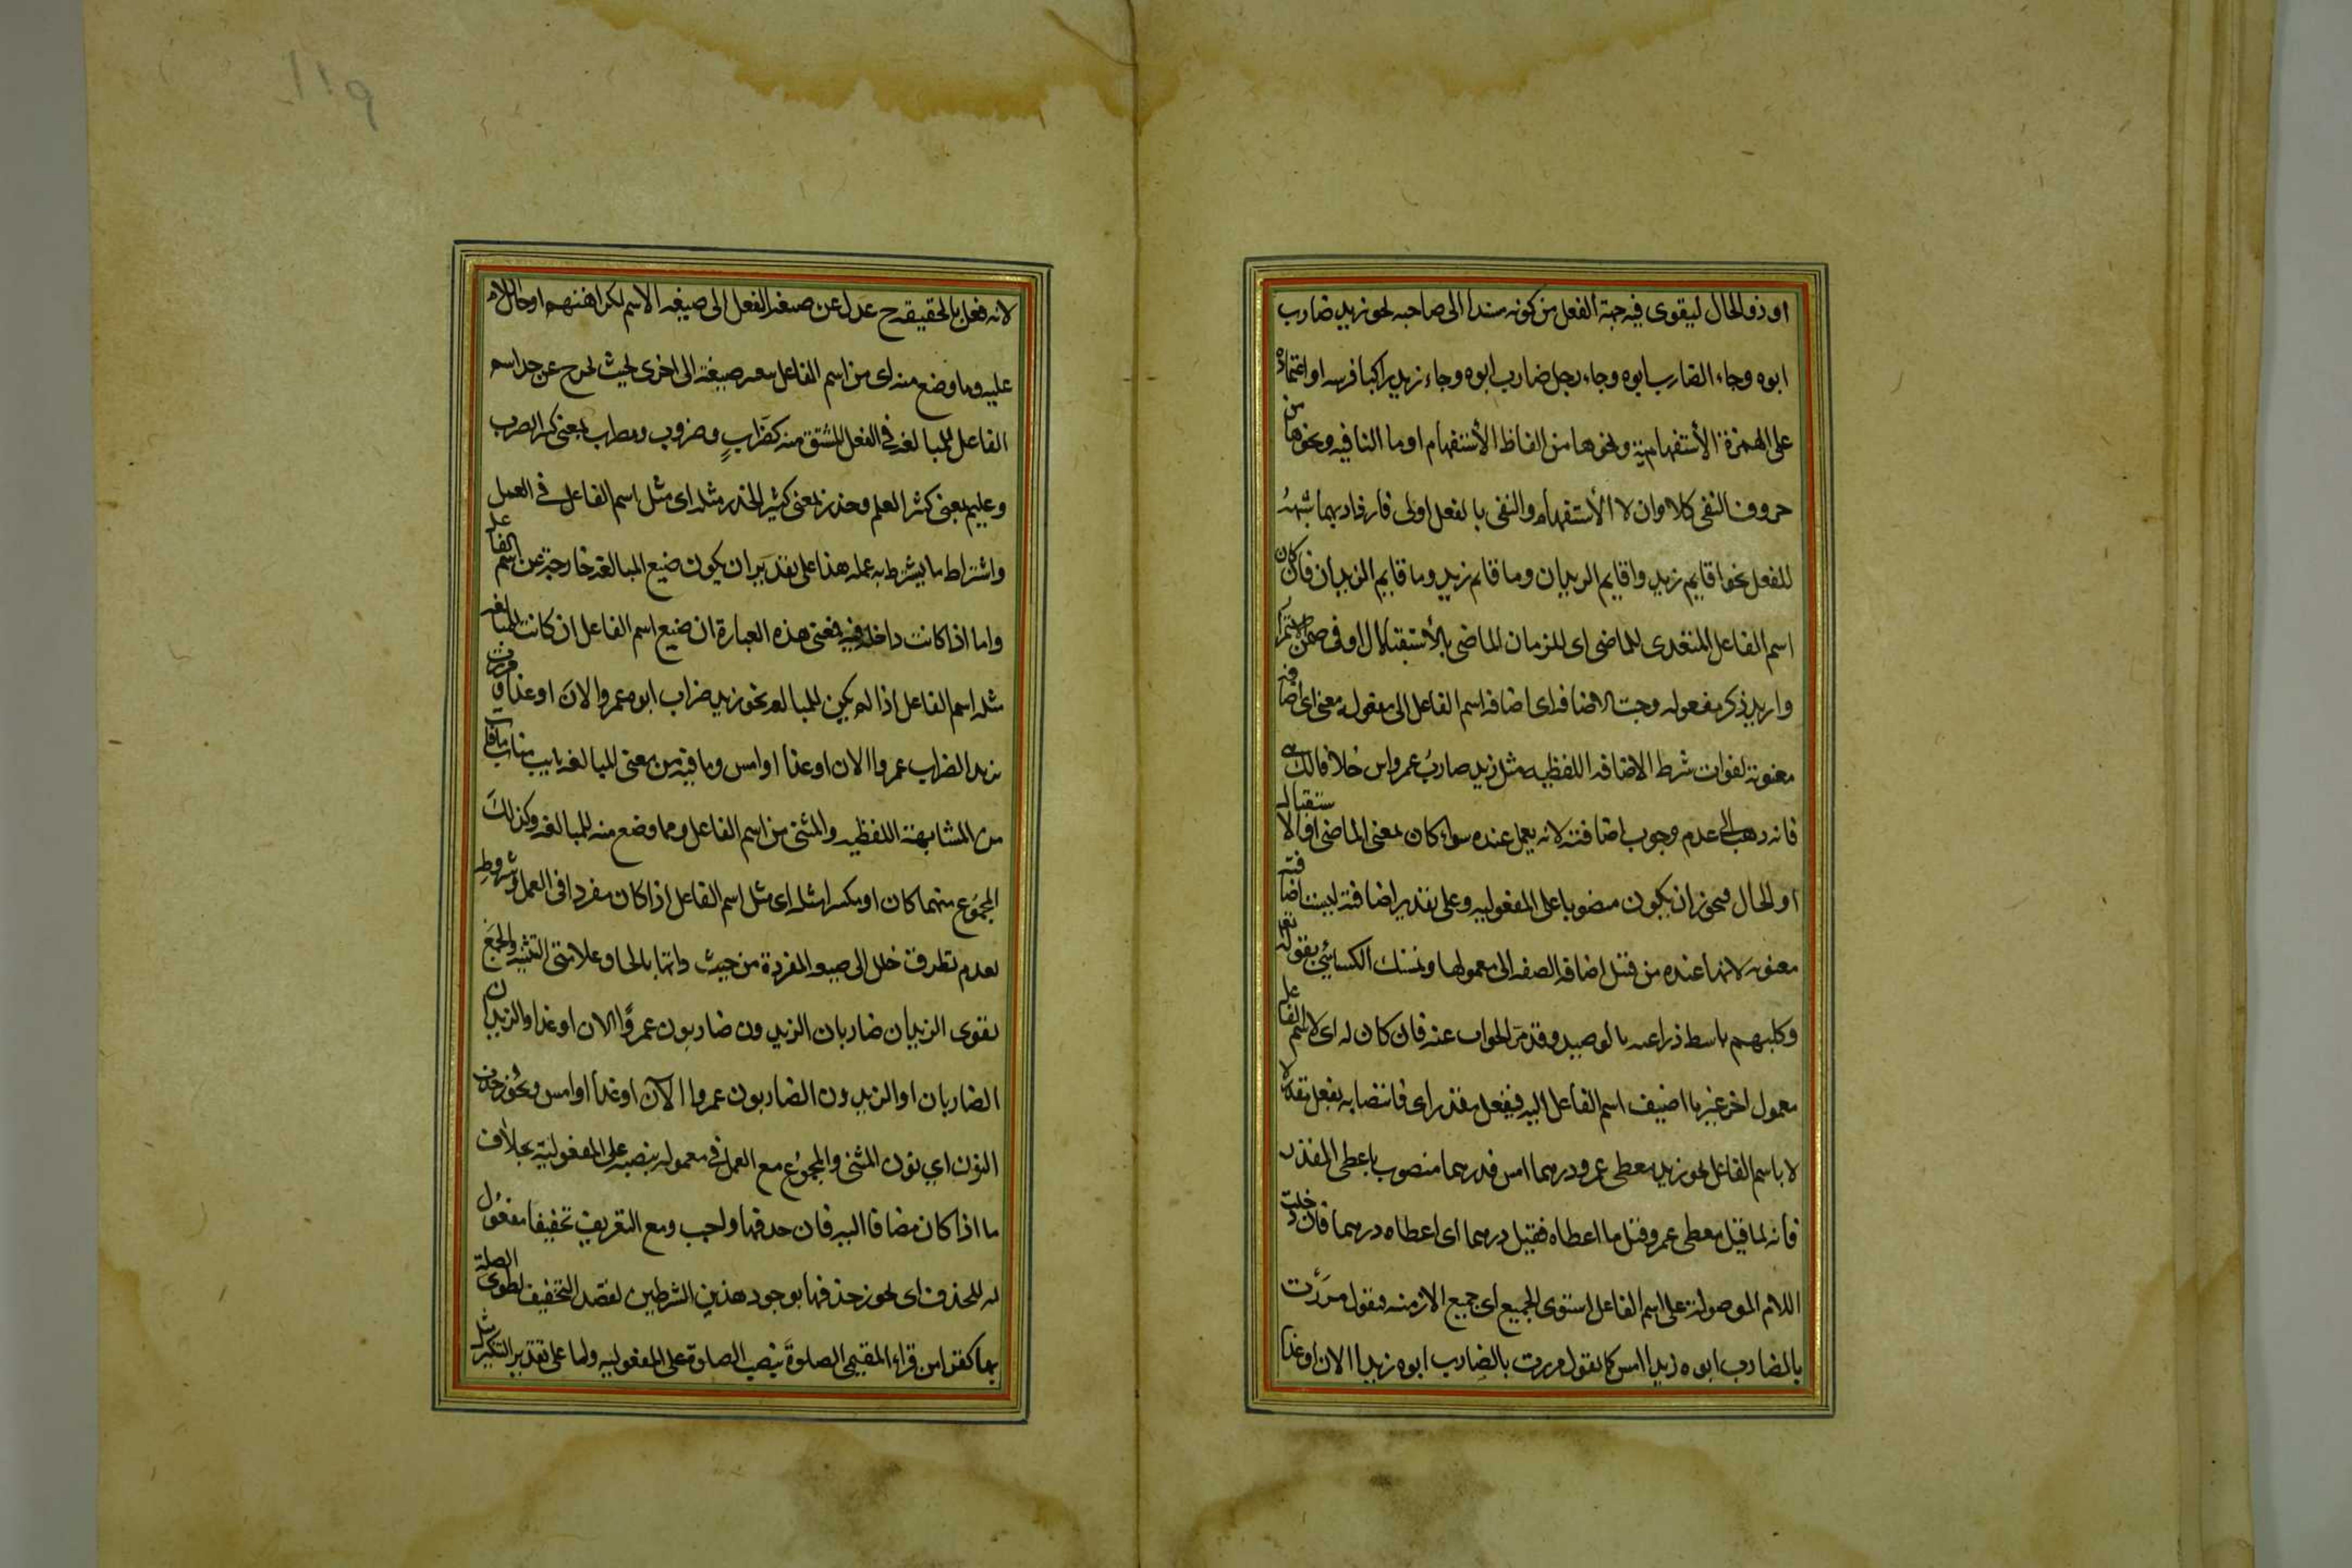 او ذو الحال ليقوى فيه جهة الفعل من كونه مسندا الى صاحبه نحو زيد ضارب
ابوه وجاء الضارب ابوه وجاء رجل ضارب ابوه وجاء زيد راكبا فرسه او اعتماده
على الهمزة الأستفهامية ونحوها من الفاظ الأستفهام او ما النافيه ونحوها من
حروف النفى كلا وان لا الأستفهام والنفى بالفعل اولى فازداد بهما شبهه
للفعل نحو اقايم زيد واقايم الزيدان وما قايم زيد وما قايم الزيدان فان كان
اسم الفاعل المتعدى للماضى اى للزمان الماضى بالأستقلال او فى ضمن الاستمرار
واريد ذكر مفعوله وجبت الاضافه اى اضافه اسم الفاعل الى مفعوله معنى اى اضافة
معنوية لفوات شرط الاضافه اللفظيه مثل زيد ضارب عمرو امس خلافا للكسائى
فانه ذهب الى عدم وجوب اضافته لانه يعمل عنده سواء كان بمعنى الماضى او الاستقبال
او الحال فيجوز ان يكون منصوبا على المفعوليه وعلى تقدير اضافته ليست اضافته
معنويه لانها عنده من قبيل اضافه الصفه الى معمولها وتمسك الكسائي بقوله تعالى
وكلبهم باسط ذراعيه بالوصيد وقد مر الجواب عنه فان كان له اى لاسم الفاعل
معمول اخر غير ما اضيف اسم الفاعل اليه فبفعل مقدر اى فانتصابه بفعل مقدر
لا باسم الفاعل نحو زيد معطى عمرو درهما امس فدرهما منصوب باعطى المقدر
فانه لما قيل معطى عمرو قيل ما اعطاه فقيل درهما اى اعطاه درهما فان دخلت
اللام الموصولة على اسم الفاعل استوى الجميع اى جميع الازمنه فيقول مررت
بالضارب ابوه زيدا امس كما تقول مررت بالضارب ابوه زيدا الان او غدا
لانه فعل بالحقيقة ح عدل عن صيغة الفعل الى صيغه الاسم لكراهتهم ادخال اللام
عليه وما وضع منه اى من اسم الفاعل بتغيير صيغته الى اخرى بحيث تخرج عن حد اسم
الفاعل للمبالغه فى الفعل المشتق منه كضرّابٍ وضروب ومضراب بمعنى كثير الضرب
وعليم بمعنى كثير العلم وحذر بمعنى كثير الحذر مثله اى مثل اسم الفاعل فى العمل
واشتراط ما يشترط به عمله هذا على تقدير ان يكون صيغ المبالغه خارجة عن اسم الفاعل
واما اذا كانت داخله فيه فمعنى هذه العبارة ان صيغ اسم الفاعل ان كانت للمبالغه
مثله اسم الفاعل اذا لم يكن للمبالغه نحو زيد ضراب ابوه عمروا الان او غدا ومررت
بزيد الضراب عمروا الان او غدا او امس وما فيه من معنى المبالغه نايب مناب مافات
من المشابهة اللفظيه والمثنى من اسم الفاعل ومما وضع منه للمبالغه وكذلك
المجموع منهما كان او مكسرا مثله اى مثل اسم الفاعل اذا كان مفردا فى العمل وشروطه
لعدم تطرق خلل الى صيغه المفردة من حيث ذاتها بالحاق علامتى التثنيه والجمع
تقوى الزيدان ضاربان الزيدون ضاربون عمروًا الان او غدا والزيدان
الضاربان او الزيدون الضاربون عمروا الآن او غدا او امس ويجوز حذف
النون اي نون المثنى والمجموع مع العمل فى معموله بنصبه على المفعولية بخلاف
ما اذا كان مضافا اليه فان حذفها واجب ومع التعريف تخفيفا مفعول
له للحذف اى يجوز حذفها بوجود هذين الشرطين لقصد التخفيف لطول الصلة
بها كقول من قراء المقيمى الصلوةَ بنصب الصلوة على المفعوليه واما على تقدير التنكير مثل